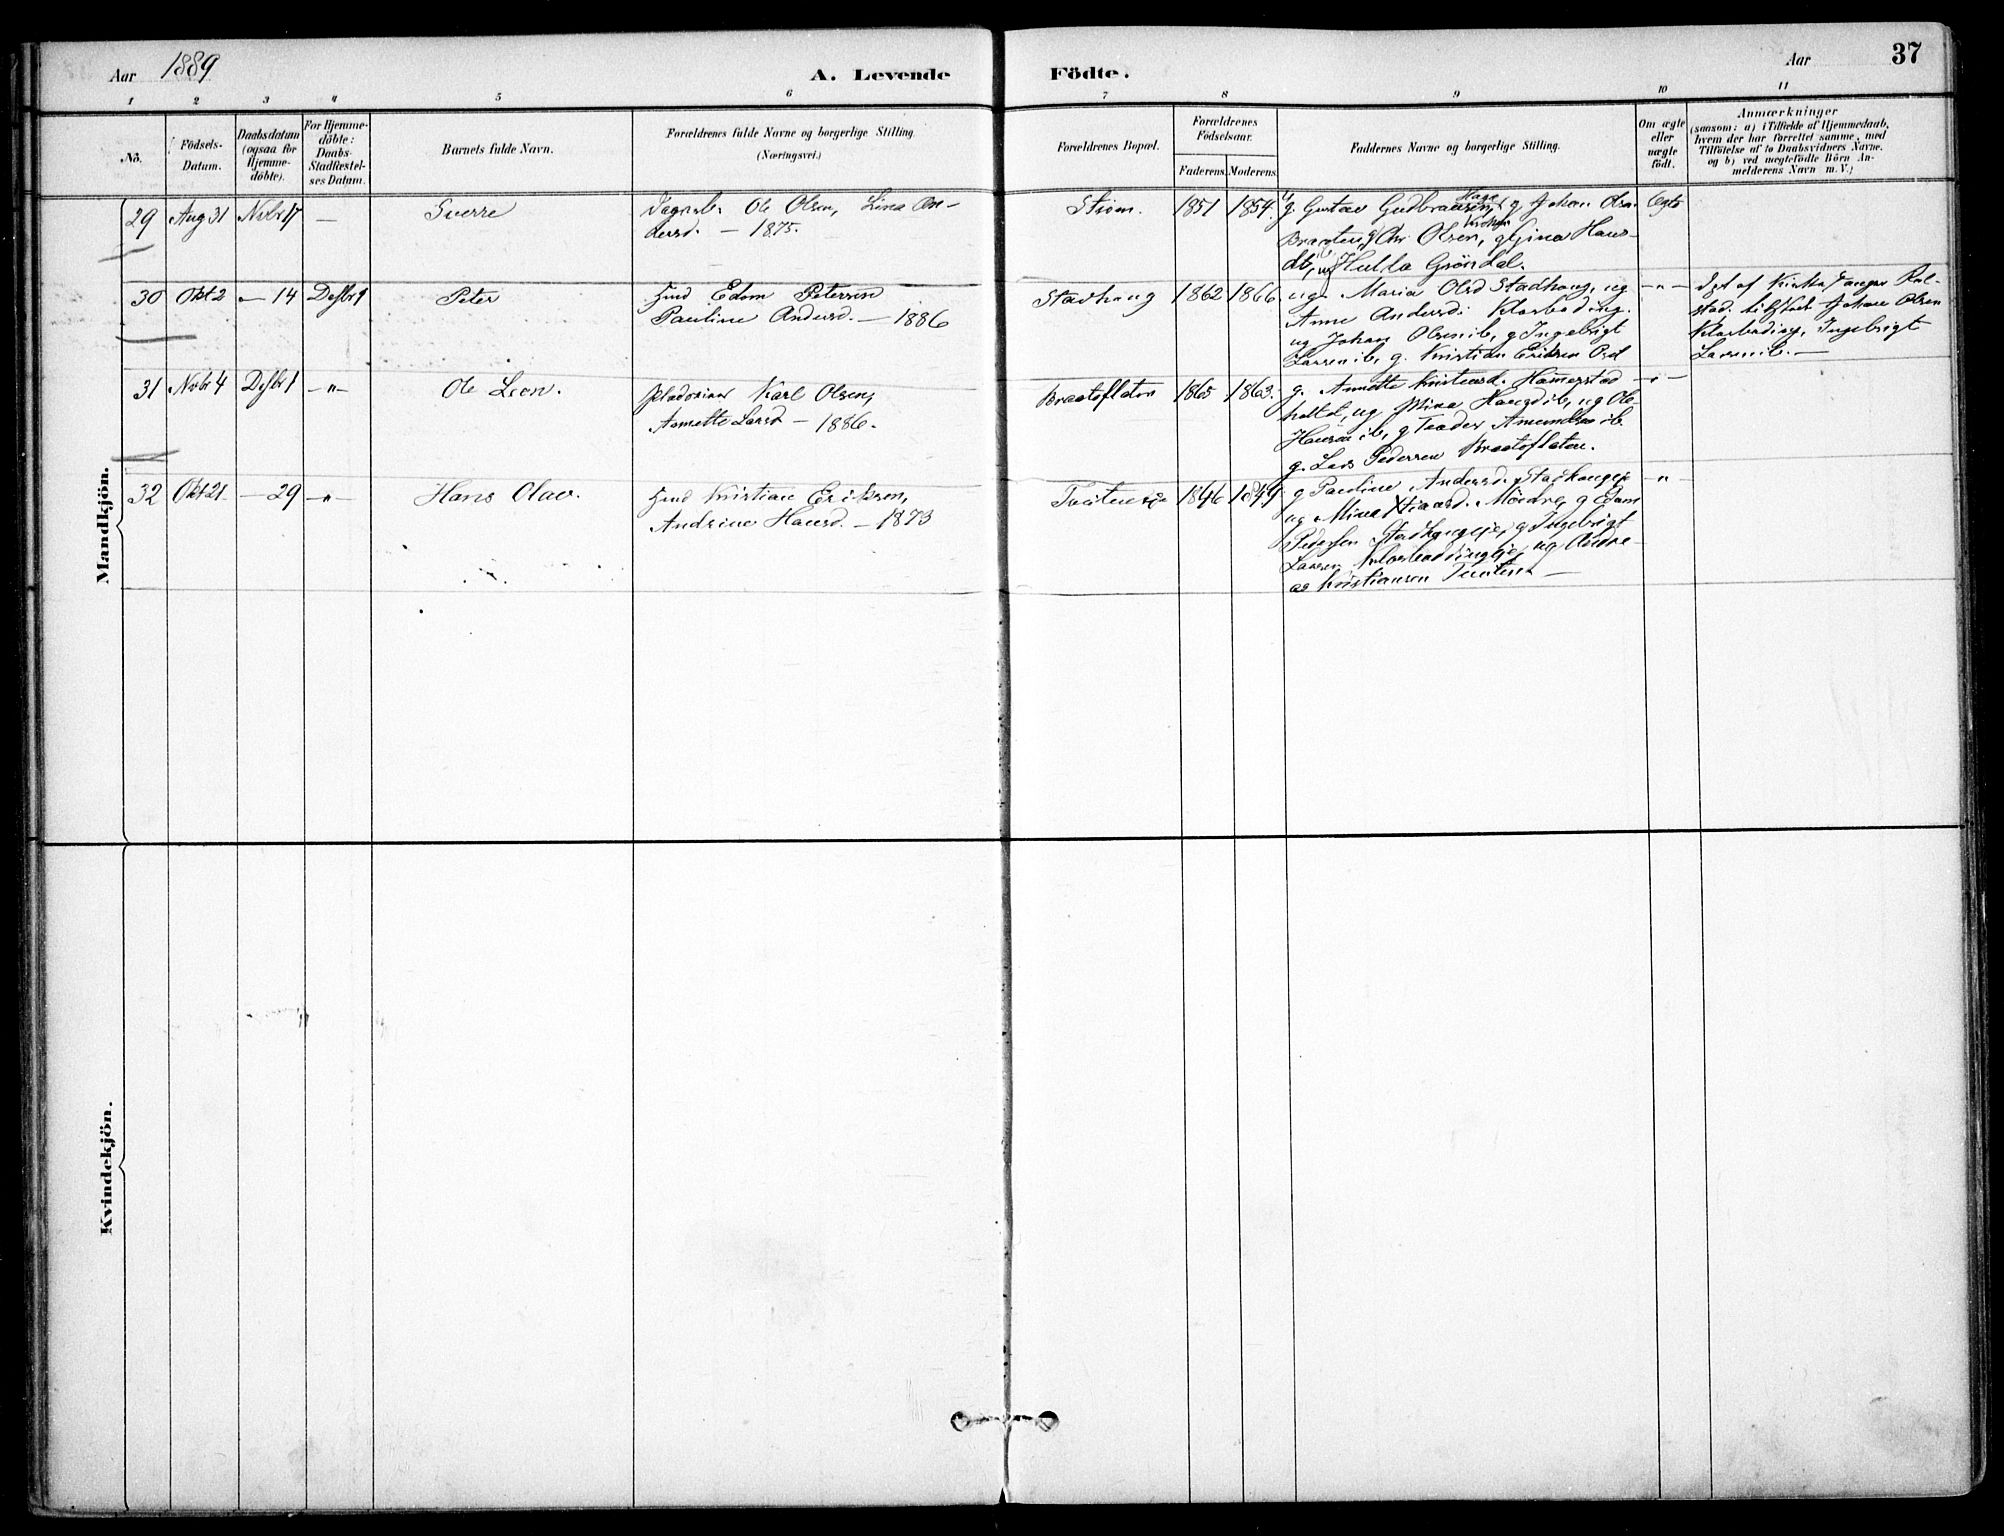 Aar 1889
A. Levende Födte.
Aar
37
1 2 3 4 5 6 7 8 9 10 11
No.
Födsels-
Datum.
Daabsdatum
(ogsaa for
Hjemme-
döbte).
For Hjemme-
döbte:
Daabs-
Stadfæstel-
ses Datum.
Barnets fulde Navn.
Forældrenes fulde Navne og borgerlige Stilling.
(Næringsvei.)
Forældrenes Bopæl.
Forældrenes
Födselsaar.
Faderens. Moderens.
Faddernes Navne og borgerlige Stilling.
Om ægte
eller
uægte
födt.
Anmærkninger
(saasom: a) i Tilfælde af Hjemmedaab,
hvem der har forrettet samme, med
Tilföielse af to Daabsvidners Navne.
og b) ved uegtefödte Börn An-
melderens Navn m. V.)
Mandkjön.
29 Aug 31 Nvbr 17 — Sverre
Ole Olsen, Lina An-
dersd. — 1875.
Strøm. 1851 1854.
g. Gustav Gudbransen, g Johan Olsn
Braaten, g Chr. Olsen, g Gina Hans-
db, ug Hulda Grøndal.
Ægte
30 Okt 2 — 14 Desbr 1 Peter
Edom Petersen
Pauline Andersd. — 1886
Stadhaug 1862 1866.
ug. Maria Olsd Stadhaug, ug
Anne Andersd.
ug Johan Olsen ib, g Ingebrigt
Larsen ib, g. Kristian Eriksen
— " —
Døpt af
Johan Olsen
Ingebrigt
Larsen ib. —
31 Nvbr 4 Desbr 1 — " — Ole Leon.
Karl Olsen,
Annette Larsd — 1886.
Braateflaten 1865 1863.
g. Annette Kristensd. Hammerstad
ug Mina Hansd ib, ug Ole
Hansen ib, g Teodor Amundsen ib
g. Lars Pedersen Braateflaten.
— " —
32 Okt 21. — 29 — " — Hans Olav.
Kristian Eriksen,
Andrine Hansd. — 1873
1846 1849
g Pauline Andersd. Stadhaugeje
ug Mina g Edom
Pedersen Stadhaugeje, g Ingebrigt
Larsen ug Andre-
as Kristiansen —
— " —
Kvindekjön.